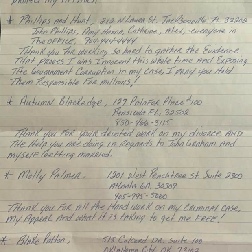 * Phillips and Hunt, N Laura St. Jacksonville FL 32202
John Phillips, Amy Hanna, Cortlann, Alex, everyone in
The office,
Thank you for working so hard to gather the Evidence
That proves I was Innocent this whole time and Exposing
The Government Corruption in my case. I pray you hold
Them Responsible for millions!
* Autumn Blackledge, Palafox Place #100
Pensacola FL 32502
Thank you for your devoted work on my divorce AND
The help you are doing in regards to and
myself getting married.
* Molly Palmer, 1201 West Peachtree St Suite 2300
Atlanta GA 30309
Thank you for all the Hard work on my criminal case,
My Appeal and what it is taking to get me FREE!
* Blake Patton, Suite 100
Oklahoma City OK